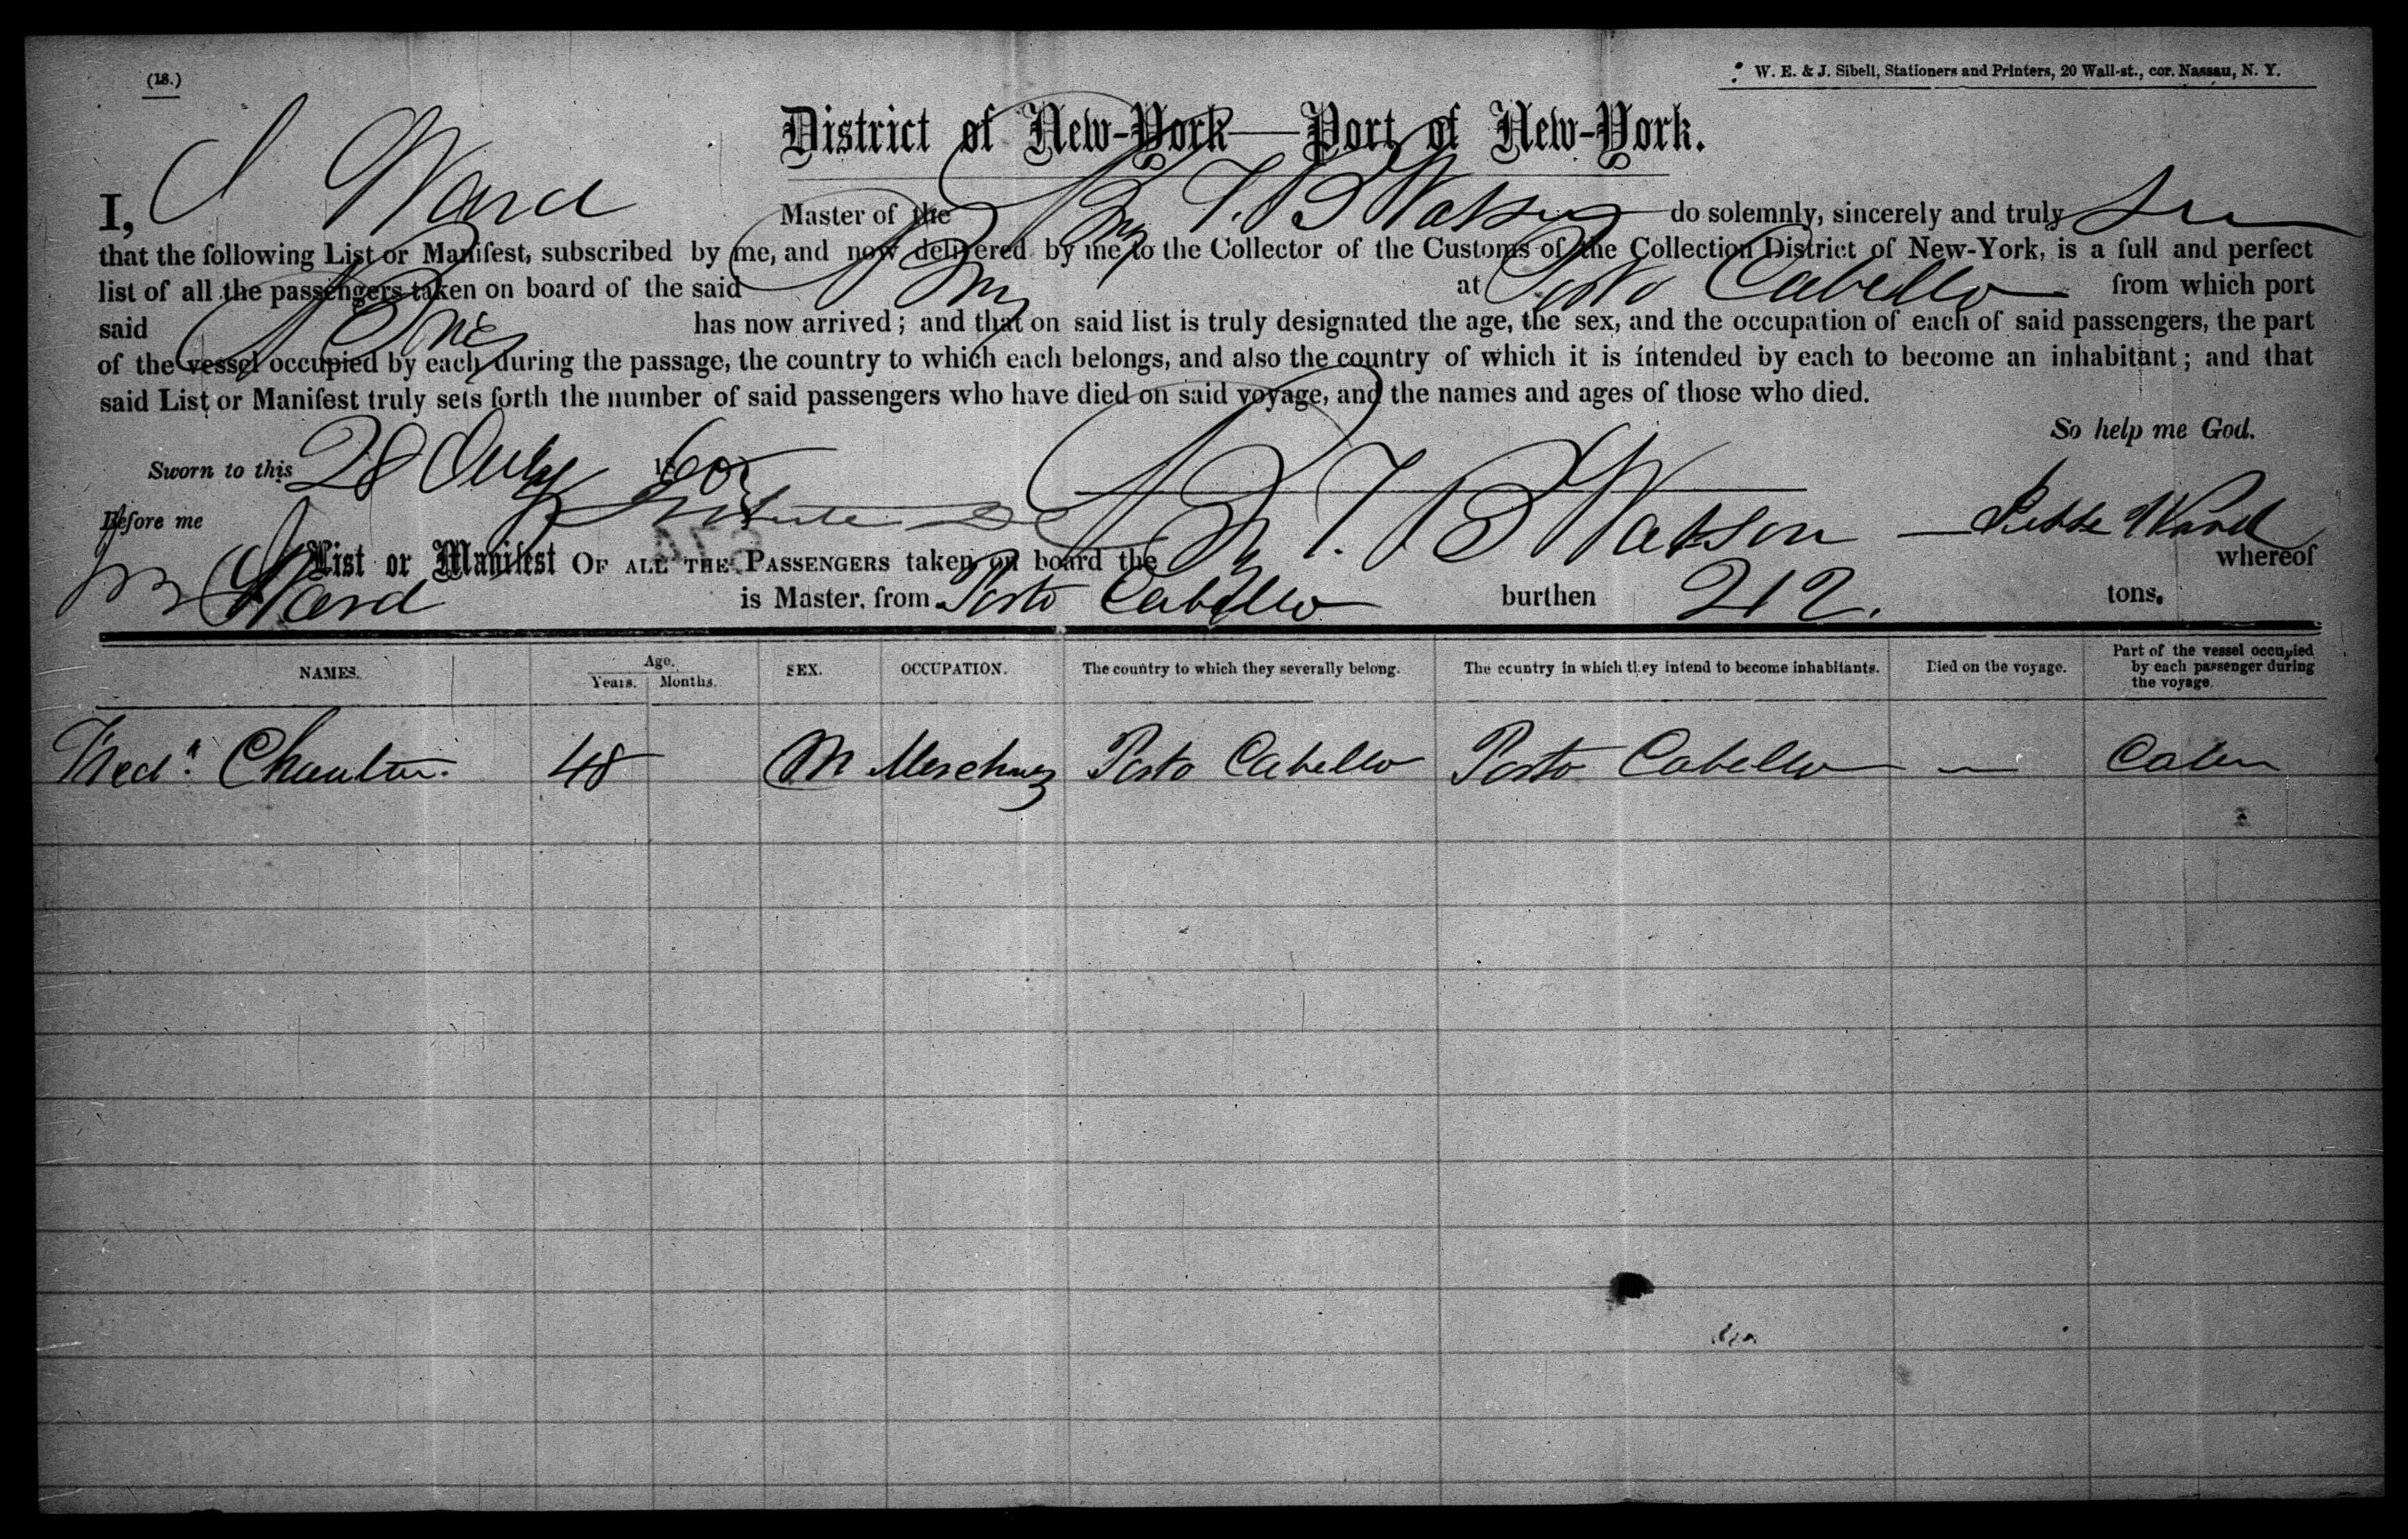 (18.)
W. E. & J. Sibell, Stationers and Printers, 20 Wall-st., cor. Nassau, N. Y.
District of New-York—Port of New-York.
I, J Ward Master of the Brig T. B Watson do solemnly, sincerely and truly
that the following List or Manifest, subscribed by me, and now delivered by me to the Collector of the Customs of the Collection District of New-York, is a full and perfect
list of all the passengers taken on board of the said Brig at Porto Cabello from which port
said Brig has now arrived; and that on said list is truly designated the age, the sex, and the occupation of each of said passengers, the part
of the vessel occupied by each during the passage, the country to which each belongs, and also the country of which it is intended by each to become an inhabitant; and that
said List or Manifest truly sets forth the number of said passengers who have died on said voyage, and the names and ages of those who died.
So help me God.
Sworn to this 28 July 1860
Before me
Ward
List or Manifest OF ALL THE PASSENGERS taken on board the Br T. B Watson whereof
Ward is Master, from Porto Cabello burthen 212. tons.
NAMES. Age. Years. Months. SEX. OCCUPATION. The country to which they severally belong. The country in which they intend to become inhabitants. Died on the voyage. Part of the vessel occupied by each passenger during the voyage.
48 M Merchant Porto Cabello Porto Cabello — Cabin